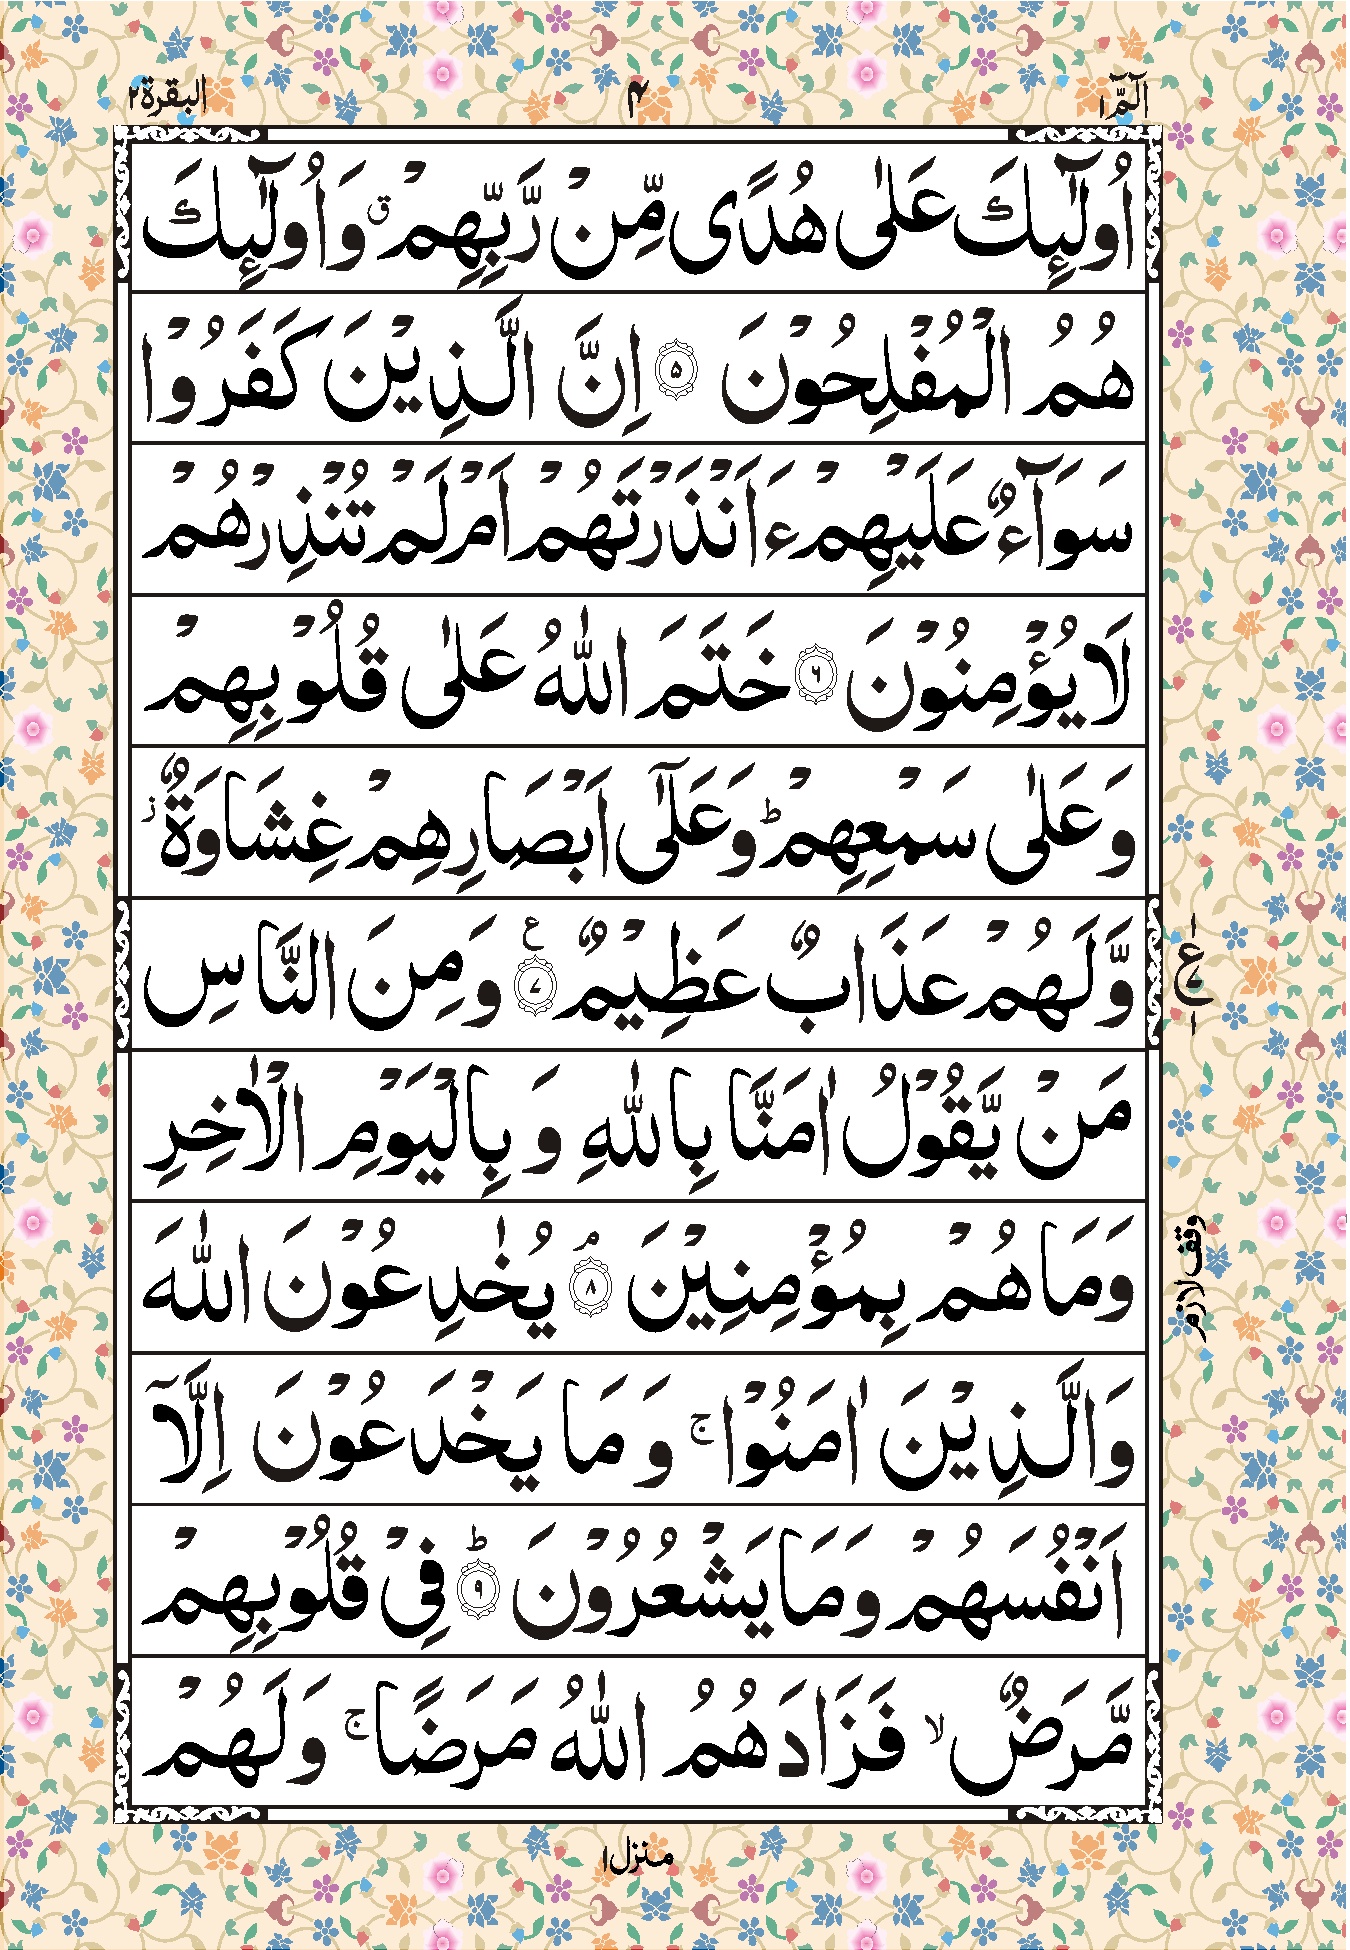 الٓمّٓ ۱
۴
البقرۃ ۲
اُولٰٓئِكَ عَلٰى هُدًى مِّنْ رَّبِّهِمْ ۗ وَاُولٰٓئِكَ
هُمُ الْمُفْلِحُوْنَ ۵ اِنَّ الَّذِيْنَ كَفَرُوْا
سَوَآءٌ عَلَيْهِمْ ءَاَنْذَرْتَهُمْ اَمْ لَمْ تُنْذِرْهُمْ
لَا يُؤْمِنُوْنَ ۶ خَتَمَ اللّٰهُ عَلٰى قُلُوْبِهِمْ
وَعَلٰى سَمْعِهِمْ ؕ وَعَلٰٓى اَبْصَارِهِمْ غِشَاوَةٌ ز
وَّلَهُمْ عَذَابٌ عَظِيْمٌ ۷ ع وَمِنَ النَّاسِ
ع
مَنْ يَّقُوْلُ اٰمَنَّا بِاللّٰهِ وَ بِالْيَوْمِ الْاٰخِرِ
وَمَا هُمْ بِمُؤْمِنِيْنَ ۸ ۘ يُخٰدِعُوْنَ اللّٰهَ
وقف لازم
وَالَّذِيْنَ اٰمَنُوْا ۚ وَ مَا يَخْدَعُوْنَ اِلَّآ
اَنْفُسَهُمْ وَمَا يَشْعُرُوْنَ ۹ ؕ فِىْ قُلُوْبِهِمْ
مَّرَضٌ ۙ فَزَادَهُمُ اللّٰهُ مَرَضًا ۚ وَلَهُمْ
منزل ۱